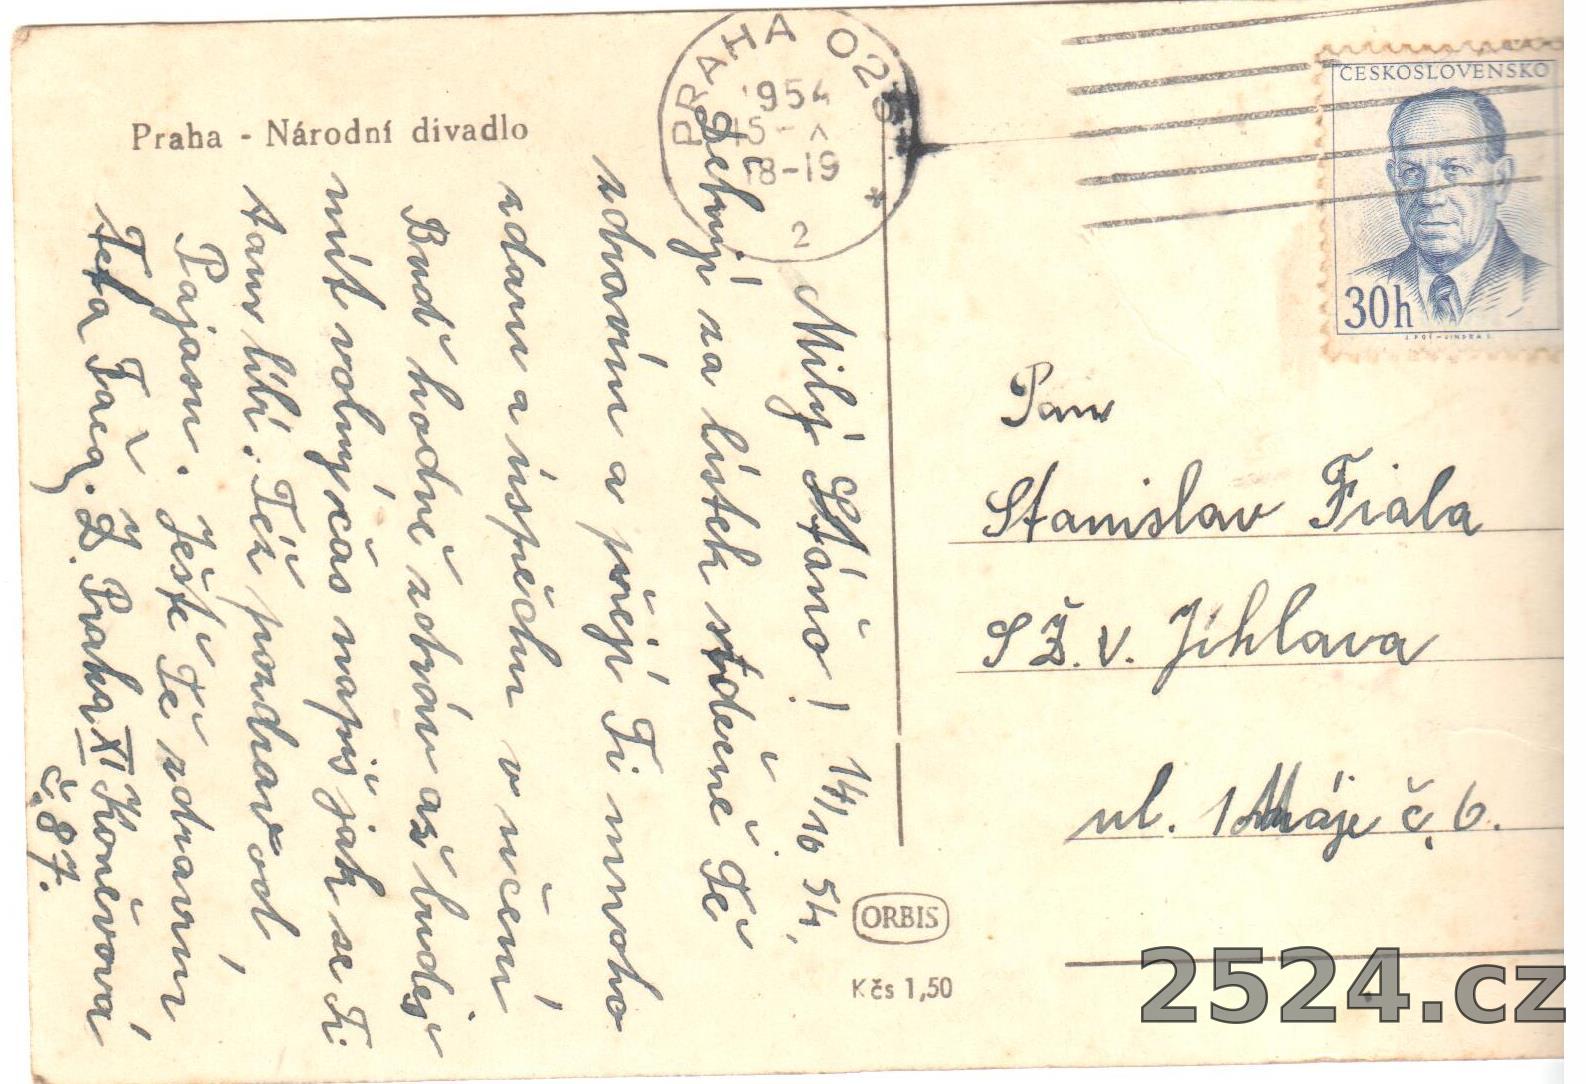 Praha - Národní divadlo
PRAHA 025
1954
15-X
18-19
2
ČESKOSLOVENSKO
30h
Milý Stáňo! 14/10 54,
Děkuji za lístek srdečně Tě
zdravím a přeji Ti mnoho
zdaru a úspěchu v učení
Buď hodně zdráv až budeš
mít volný čas napiš jak se Ti
tam líbí. Též pozdrav od
Pájam. Ještě Tě zdraví
teta Z. Praha XI Koněvová
č. 87.
Pan
Stanislav Fiala
SŽ. v. Jihlava
ul. 1 Máje č. 6.
ORBIS
Kčs 1,50
2524.cz